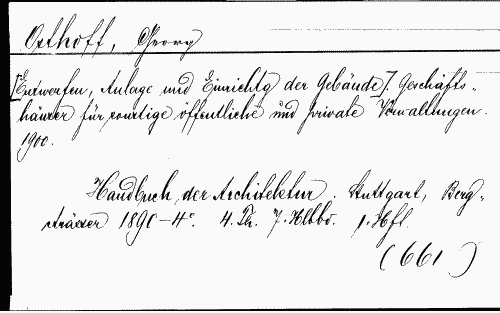 Osthoff, Georg
[Entwerfen, Anlage und Einrichtg der Gebäude]. Geschäfts-
häuser für sonstige öffentliche und private Verwaltungen.
1900.
Handbuch der Architektur. Stuttgart, Berg-
strässer 1890-4°. 4. Th. 7. Hlbbd. 1. Hft.
(661)